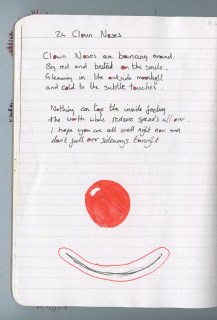 24 Clown Noses
Clown Noses are bouncing around.
Big red and bested on the smile.
Gleaming in the outside moonlight
and cold to the subtle touches.
Nothing can top the inside feeling
the worth whole redness spreads all over.
I hope you are all well right now and
don't fall over sideways tonight